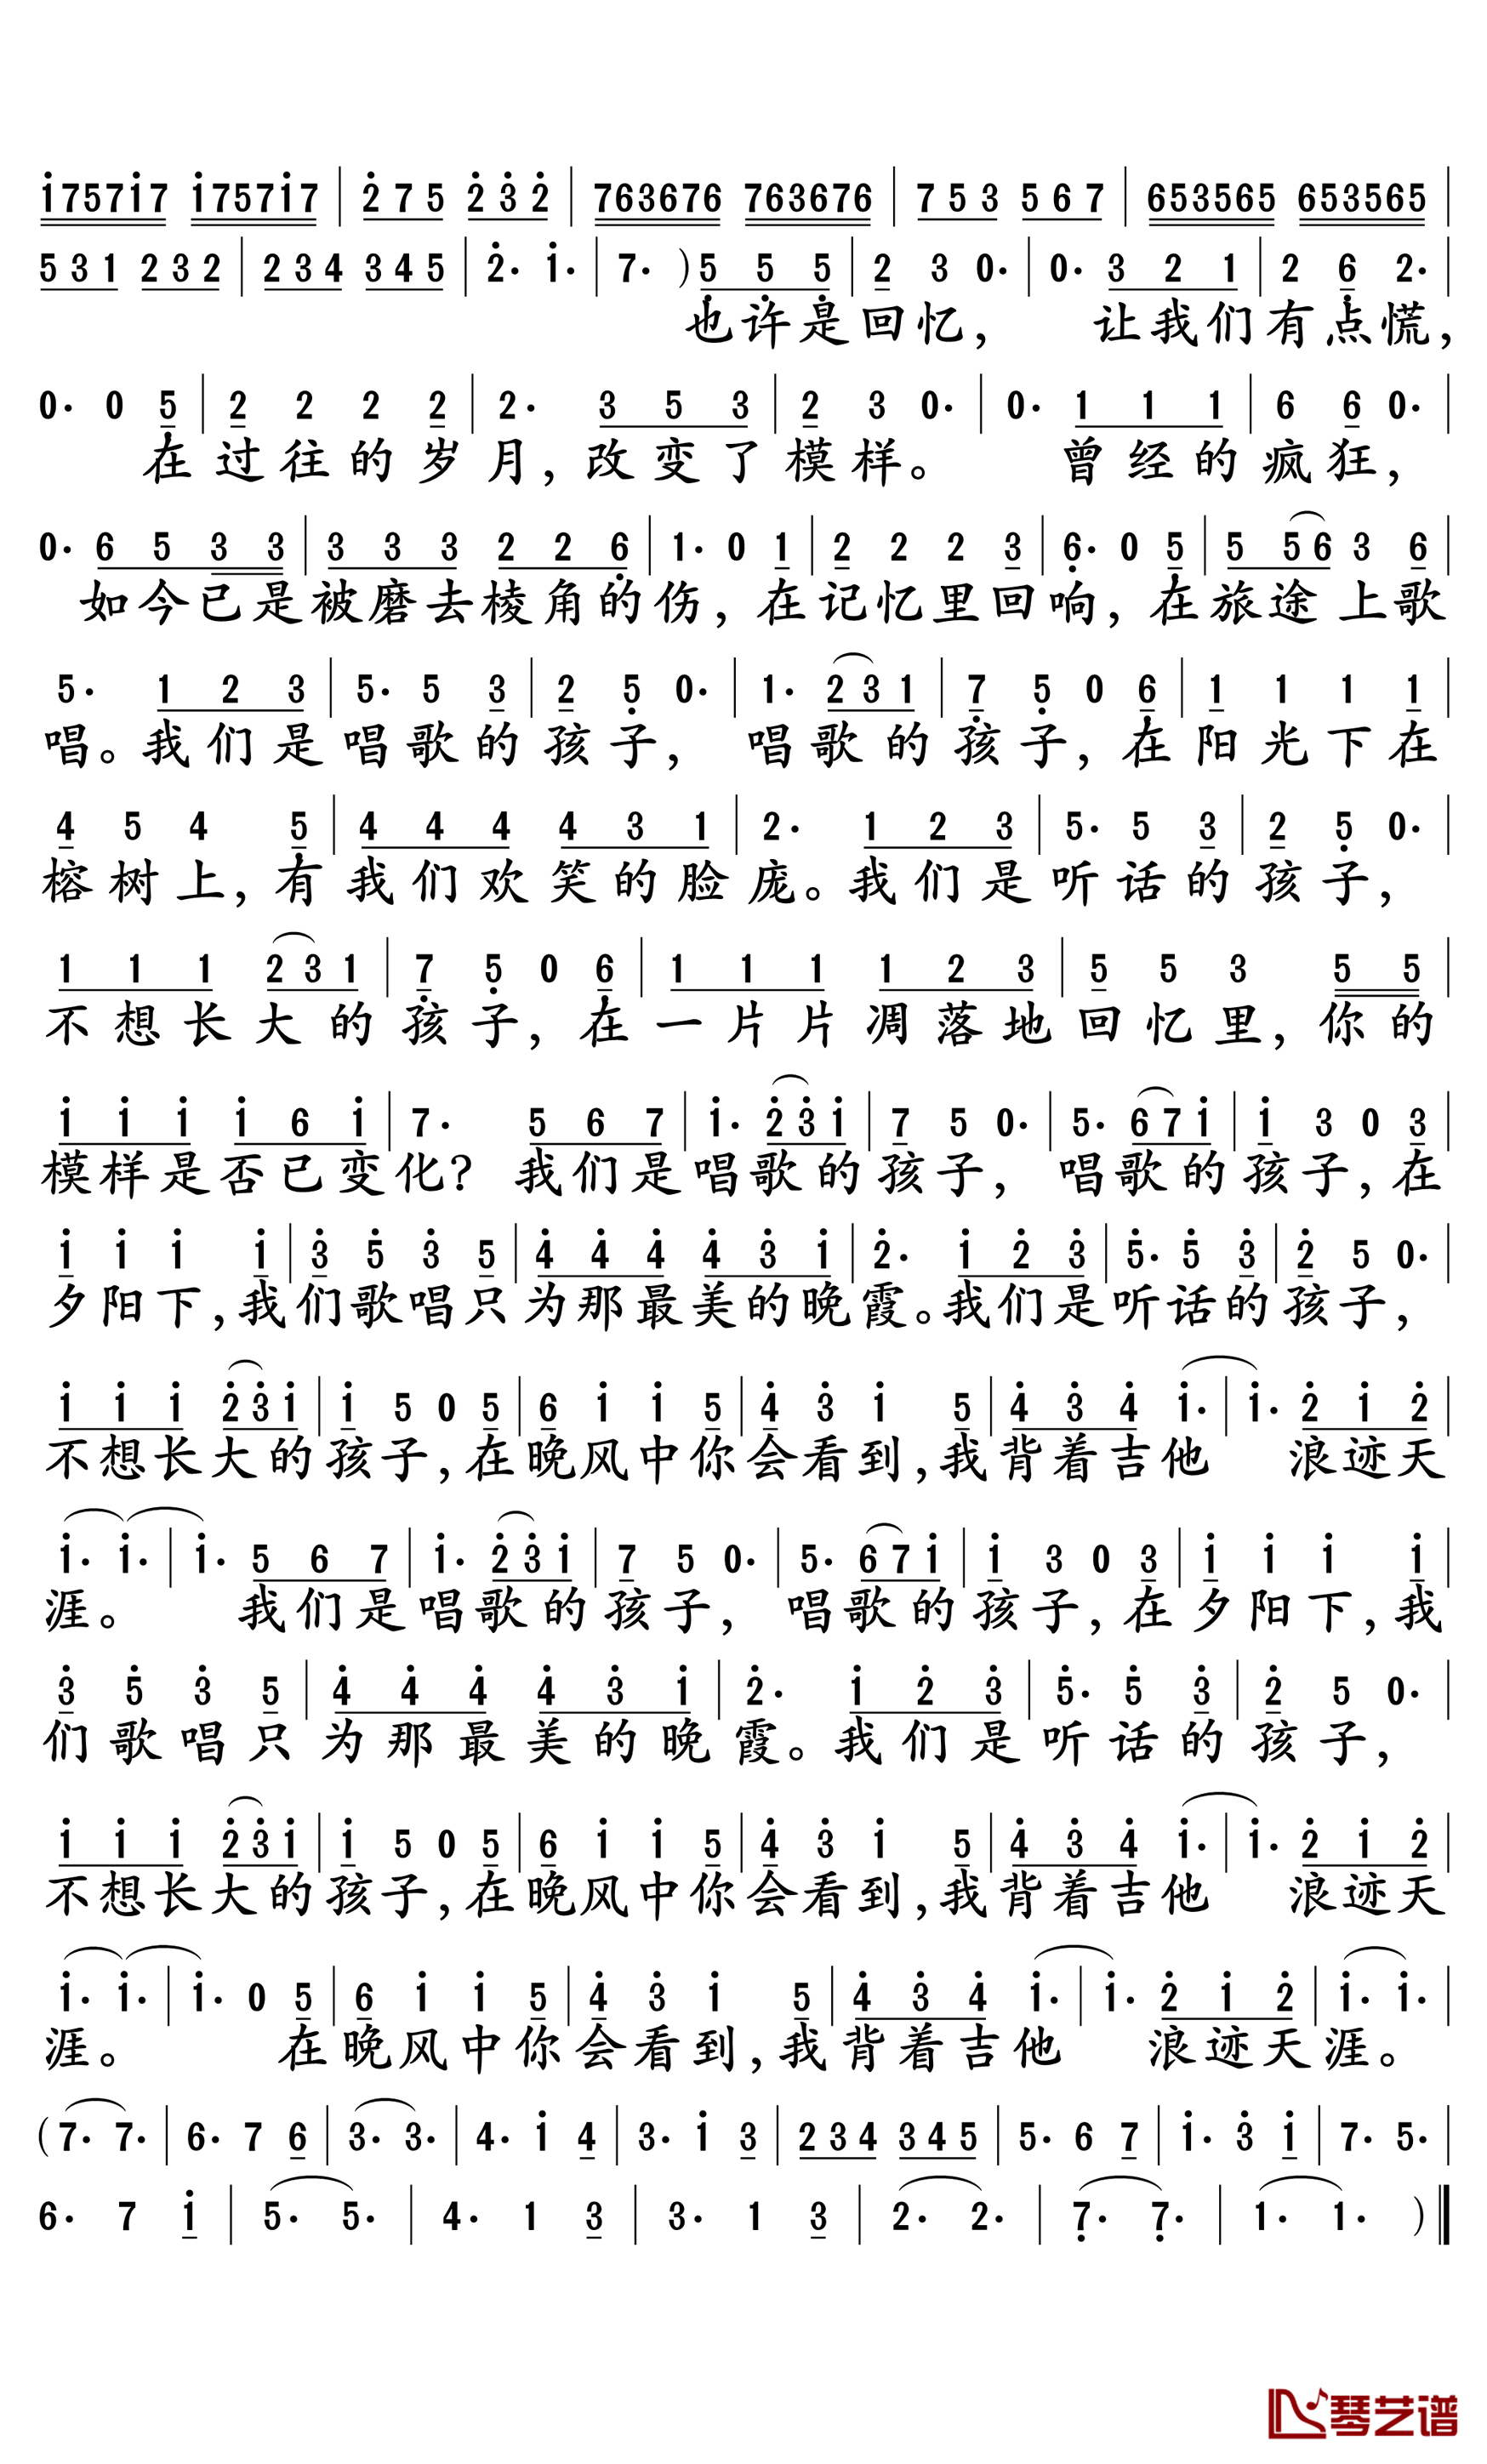 i757i7 i757i7 | 275 232 | 763676 763676 | 753 567 | 653565 653565 |
531 232 | 234 345 | 2· i· | 7· ) 5 5 5 | 2 3 0· | 0· 3 2 1 | 2 6 2· |
也许是回忆, 让我们有点慌,
0· 0 5 | 2 2 2 2 | 2· 3 5 3 | 2 3 0· | 0· 1 1 1 | 6 6 0· |
在过往的岁月,改变了模样。 曾经的疯狂,
0· 6 5 3 3 | 3 3 3 2 2 6 | 1· 0 1 | 2 2 2 3 | 6· 0 5 | 5 5 6 3 6 |
如今已是被磨去棱角的伤,在记忆里回响,在旅途上歌
5· 1 2 3 | 5· 5 3 | 2 5 0· | 1· 2 3 1 | 7 5 0 6 | 1 1 1 1 |
唱。我们是唱歌的孩子, 唱歌的孩子,在阳光下在
4 5 4 5 | 4 4 4 4 3 1 | 2· 1 2 3 | 5· 5 3 | 2 5 0· |
榕树上,有我们欢笑的脸庞。我们是听话的孩子,
1 1 1 2 3 1 | 7 5 0 6 | 1 1 1 1 2 3 | 5 5 3 5 5 |
不想长大的孩子,在一片片凋落地回忆里,你的
i i i i 6 i | 7· 5 6 7 | i· 2 3 i | 7 5 0· | 5· 6 7 i | i 3 0 3 |
模样是否已变化? 我们是唱歌的孩子, 唱歌的孩子,在
i i i i | 3 5 3 5 | 4 4 4 4 3 i | 2· i 2 3 | 5· 5 3 | 2 5 0· |
夕阳下,我们歌唱只为那最美的晚霞。我们是听话的孩子,
i i i 2 3 i | i 5 0 5 | 6 i i 5 | 4 3 i 5 | 4 3 4 i· | i· 2 i 2 |
不想长大的孩子,在晚风中你会看到,我背着吉他 浪迹天
i· i· | i· 5 6 7 | i· 2 3 i | 7 5 0· | 5· 6 7 i | i 3 0 3 | i i i i |
涯。 我们是唱歌的孩子, 唱歌的孩子,在夕阳下,我
3 5 3 5 | 4 4 4 4 3 i | 2· i 2 3 | 5· 5 3 | 2 5 0· |
们歌唱只为那最美的晚霞。我们是听话的孩子,
i i i 2 3 i | i 5 0 5 | 6 i i 5 | 4 3 i 5 | 4 3 4 i· | i· 2 i 2 |
不想长大的孩子,在晚风中你会看到,我背着吉他 浪迹天
i· i· | i· 0 5 | 6 i i 5 | 4 3 i 5 | 4 3 4 i· | i· 2 i 2 | i· i· |
涯。 在晚风中你会看到,我背着吉他 浪迹天涯。
( 7· 7· | 6· 7 6 | 3· 3· | 4· i 4 | 3· i 3 | 234 345 | 5· 6 7 | i· 3 i | 7· 5· |
6· 7 i | 5· 5· | 4· 1 3 | 3· 1 3 | 2· 2· | 7· 7· | 1· 1· ) ‖
琴艺谱